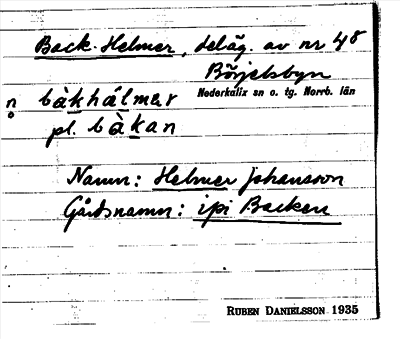 Back-Helmer, deläg. av nr 48
Börjelsbyn
Nederkalix sn o. tg. Norrb. län
n bàkhálmar
o
pl. bàkan
Namn: Helmer Johansson
Gårdsnamn: ipi Backen
RUBEN DANIELSSON 1935